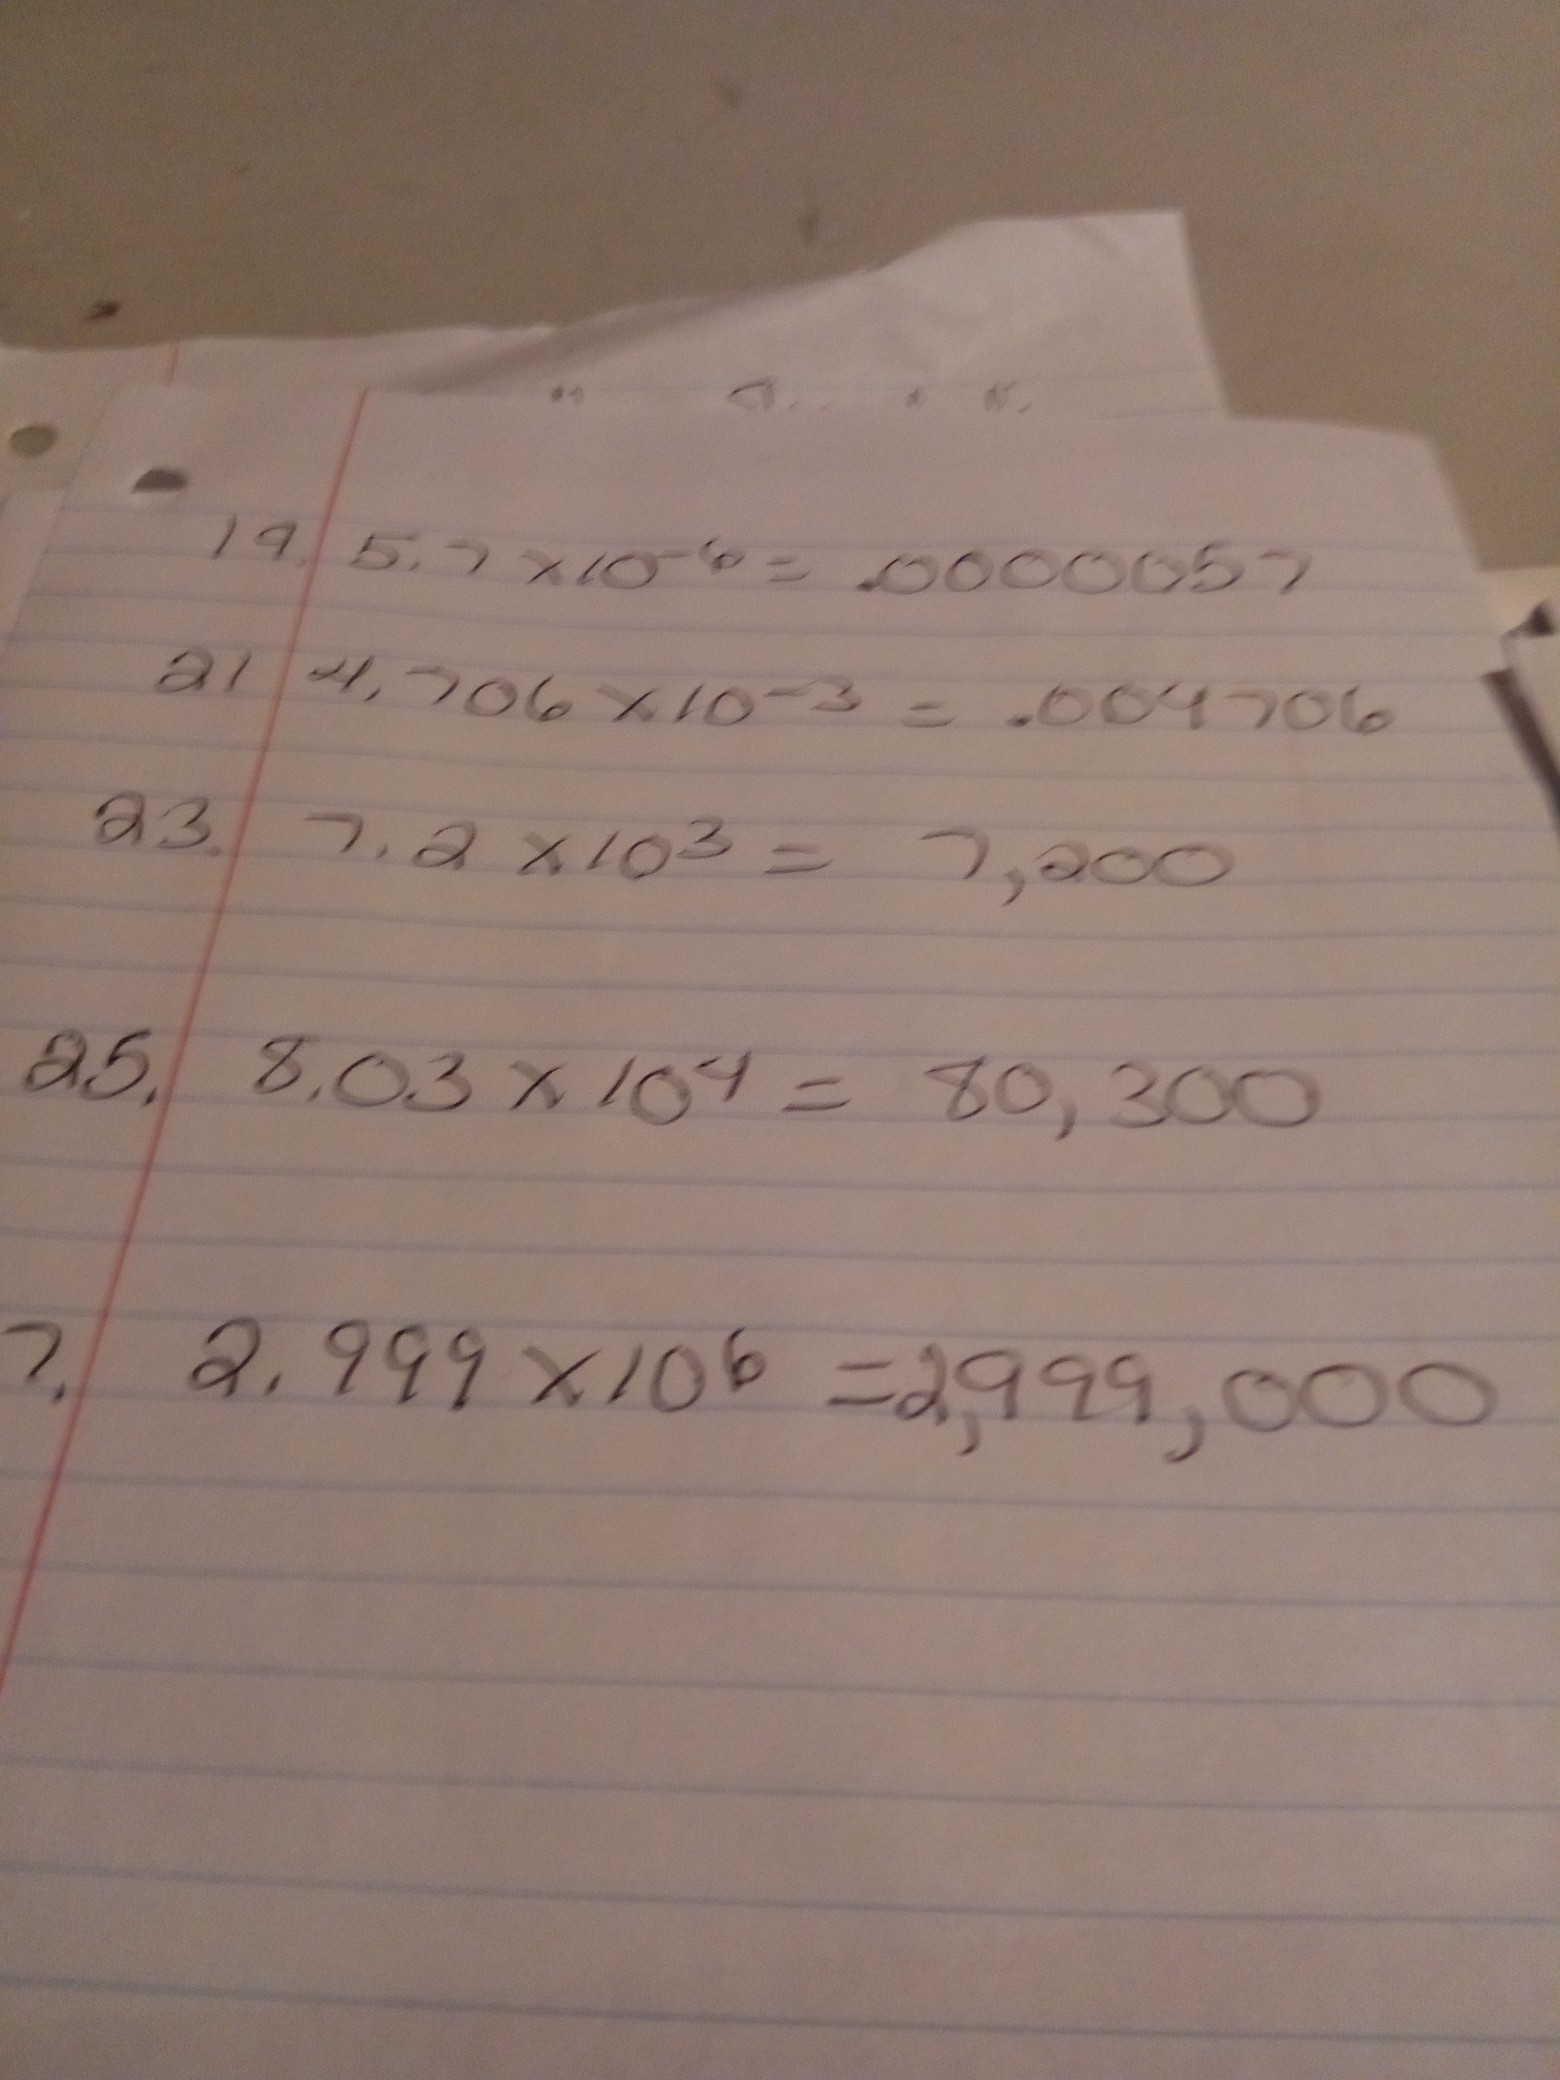 19. 5.7 x 10⁻⁶ = .0000057
21 4.706 x 10⁻³ = .004706
23. 7.2 x 10³ = 7,200
25. 8.03 x 10⁴ = 80,300
7. 2.999 x 10⁶ = 2,999,000